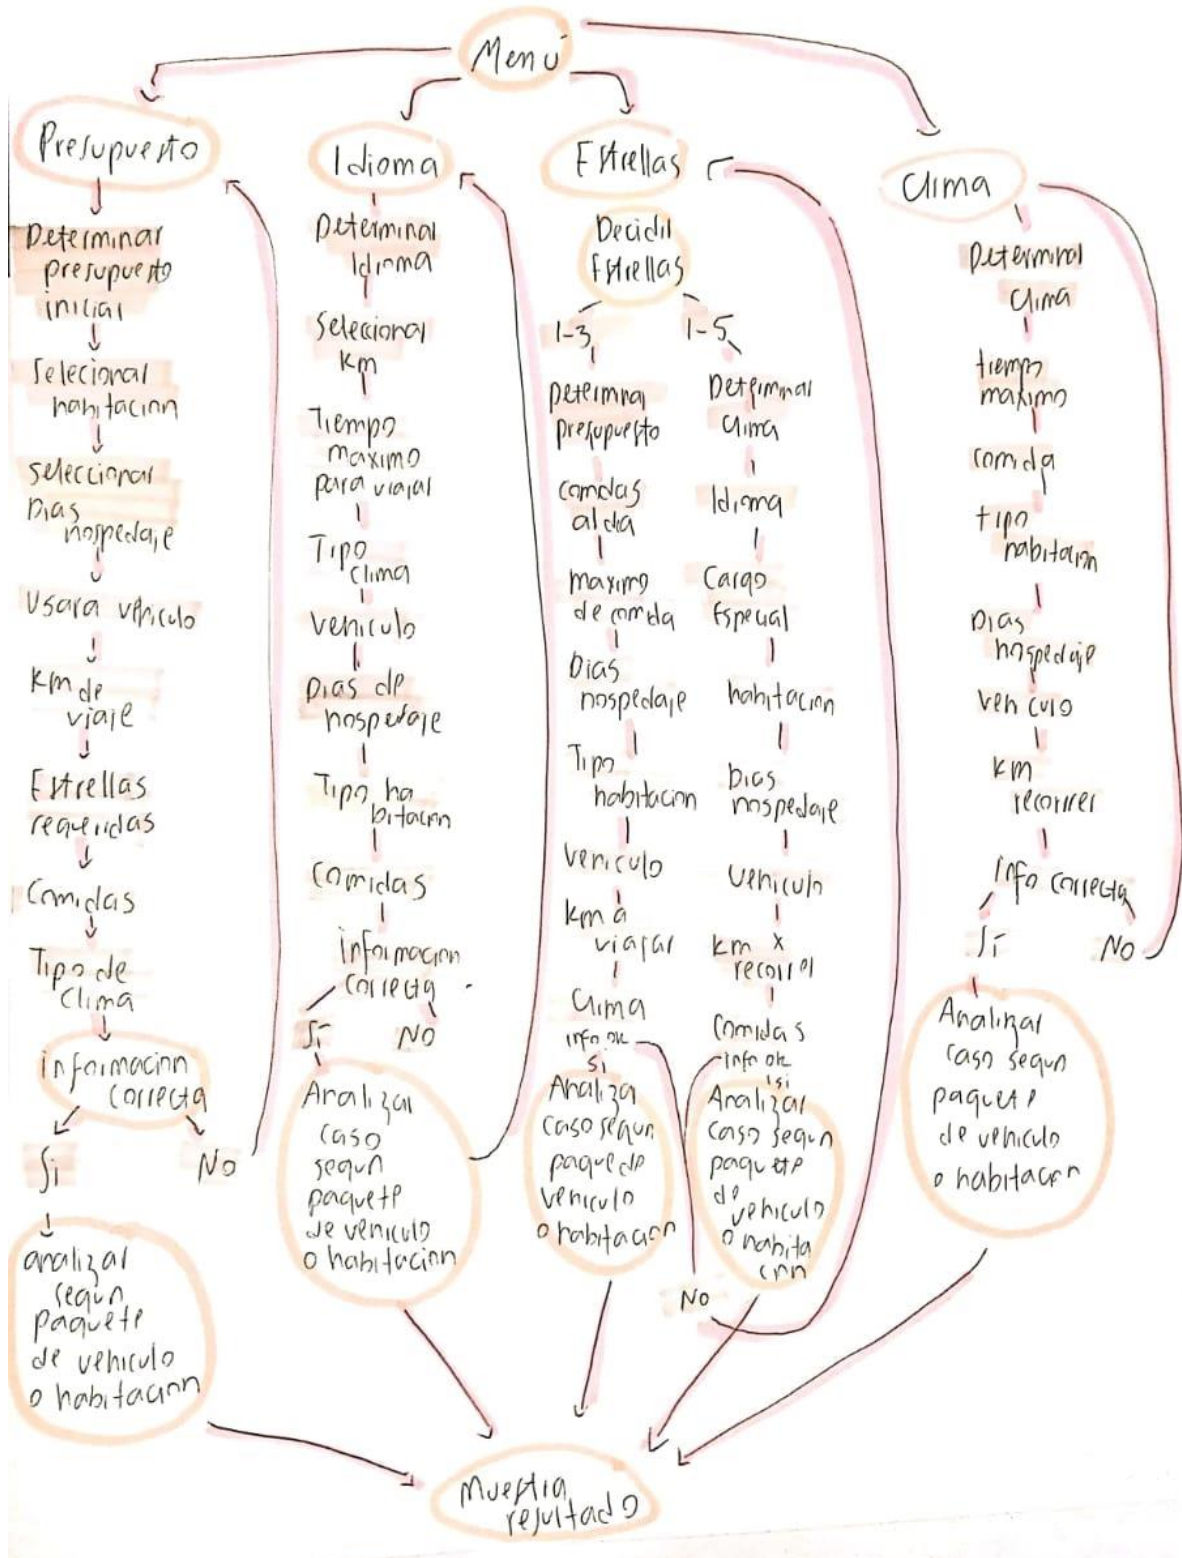 Menú
Presupuesto
Determinar
presupuesto
inicial
Selecionar
habitacion
Seleccionar
Dias
hospedaje
Usara vehiculo
Km de
viaje
Estrellas
requeridas
Comidas
Tipo de
Clima
informacion
correcta
Si
No
analizar
segun
paquete
de vehiculo
o habitacion
Idioma
Determinar
Idioma
Seleccionar
Km
Tiempo
maximo
para viajar
Tipo
clima
vehiculo
Dias de
hospedaje
Tipo ha
bitacion
Comidas
informacion
correcta
Si
No
Analizar
caso
segun
paquete
de vehiculo
o habitacion
Estrellas
Decidir
Estrellas
1-3
Determinar
presupuesto
comidas
al dia
maximo
de comida
Dias
hospedaje
Tipo
habitacion
vehiculo
km a
viajar
Clima
info ok
si
Analizar
caso segun
paquede
vehiculo
o habitacion
1-5
Determinar
Clima
Idioma
Cargo
Especial
habitacion
Dias
hospedaje
vehiculo
km x
recorrer
Comidas
info ok
si
Analizar
caso segun
paquete
de
vehiculo
o habita
cion
No
Clima
Determinar
Clima
tiempo
maximo
comida
tipo
habitacion
Dias
hospedaje
vehculo
km
recorrer
Info correcta
Si
No
Analizar
caso segun
paquete
de vehiculo
o habitacion
Muestra
resultado